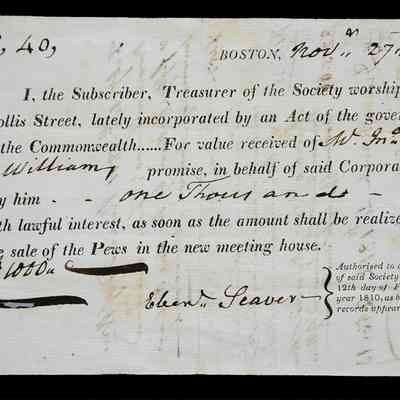 , 40,
BOSTON, Novr. 27
I, the Subscriber, Treasurer of the Society worship
ollis Street, lately incorporated by an Act of the gover
the Commonwealth......For value received of Mr. Jno
Williams promise, in behalf of said Corpora
y him - - one Thousand -
th lawful interest, as soon as the amount shall be realize
e sale of the Pews in the new meeting house.
1000
Authorised to
of said Society
12th day of F
year 1810, as b
records appear
Ebenr. Seaver